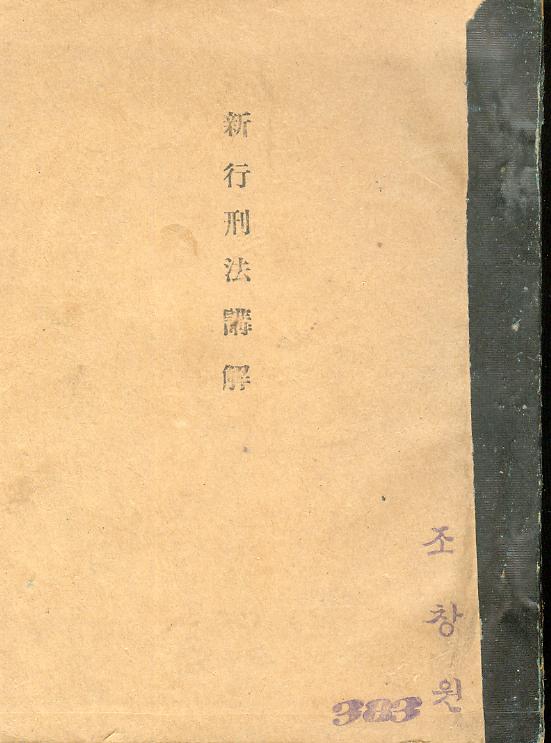 新行刑法講解
조창원
383